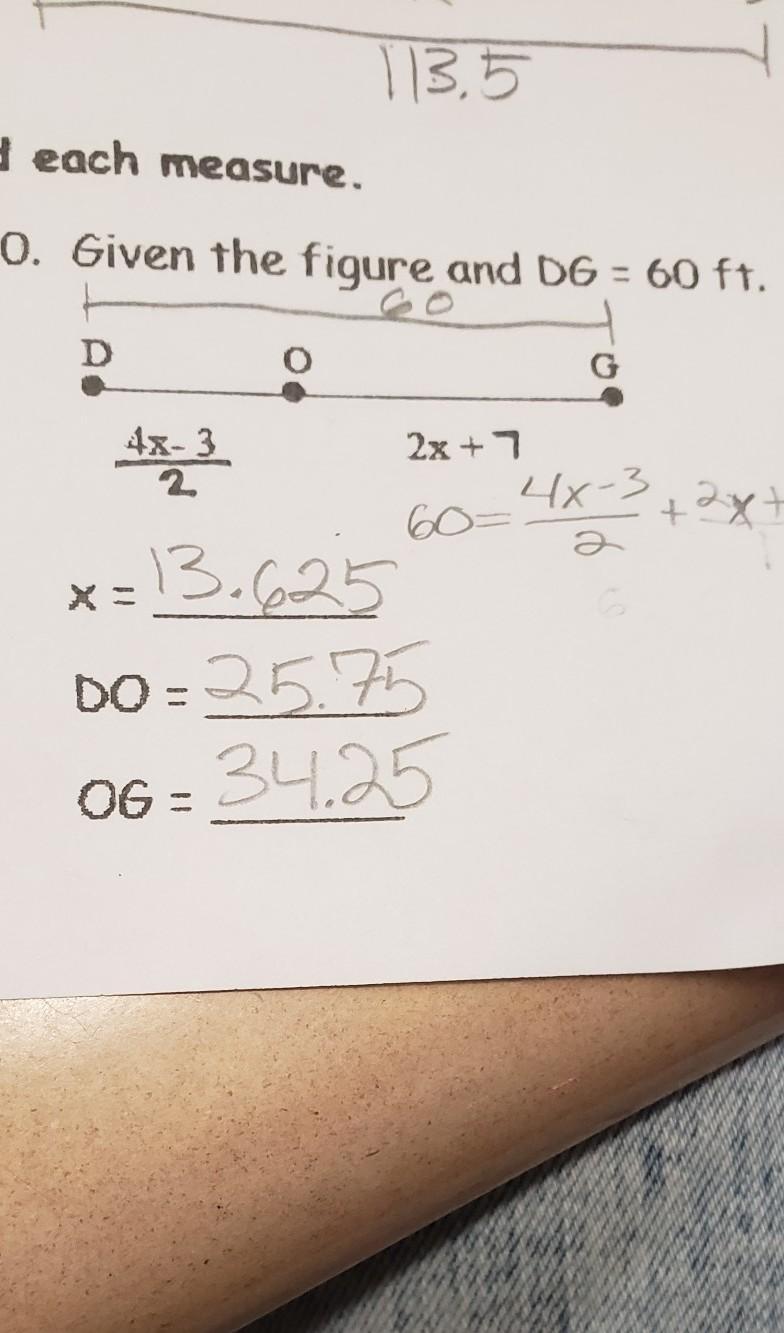 113.5
each measure.
0. Given the figure and DG = 60 ft.
60
D O G
4x-3
2
2x+7
60=4x-3/2+2x+
x = 13.625
DO = 25.75
OG = 34.25